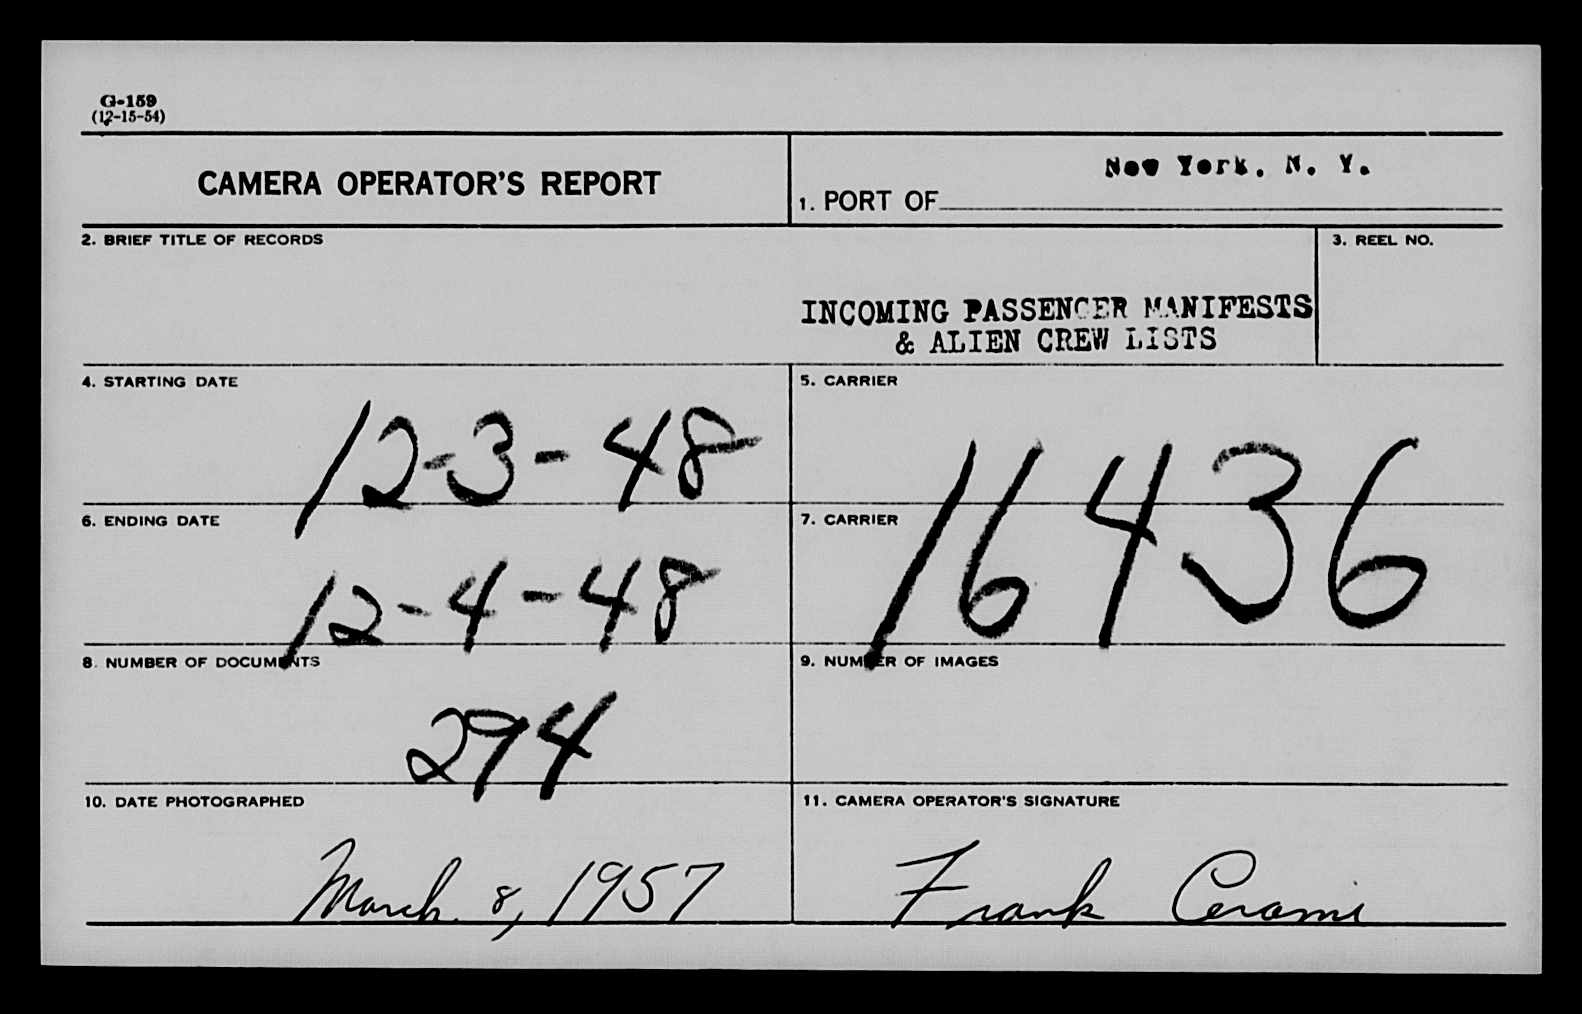 G-159
(12-15-54)
CAMERA OPERATOR'S REPORT
New York, N. Y.
1. PORT OF
2. BRIEF TITLE OF RECORDS
3. REEL NO.
INCOMING PASSENGER MANIFESTS
& ALIEN CREW LISTS
4. STARTING DATE
12-3-48
5. CARRIER
16436
6. ENDING DATE
12-4-48
7. CARRIER
8. NUMBER OF DOCUMENTS
294
9. NUMBER OF IMAGES
10. DATE PHOTOGRAPHED
March 8, 1957
11. CAMERA OPERATOR'S SIGNATURE
Frank Cerami